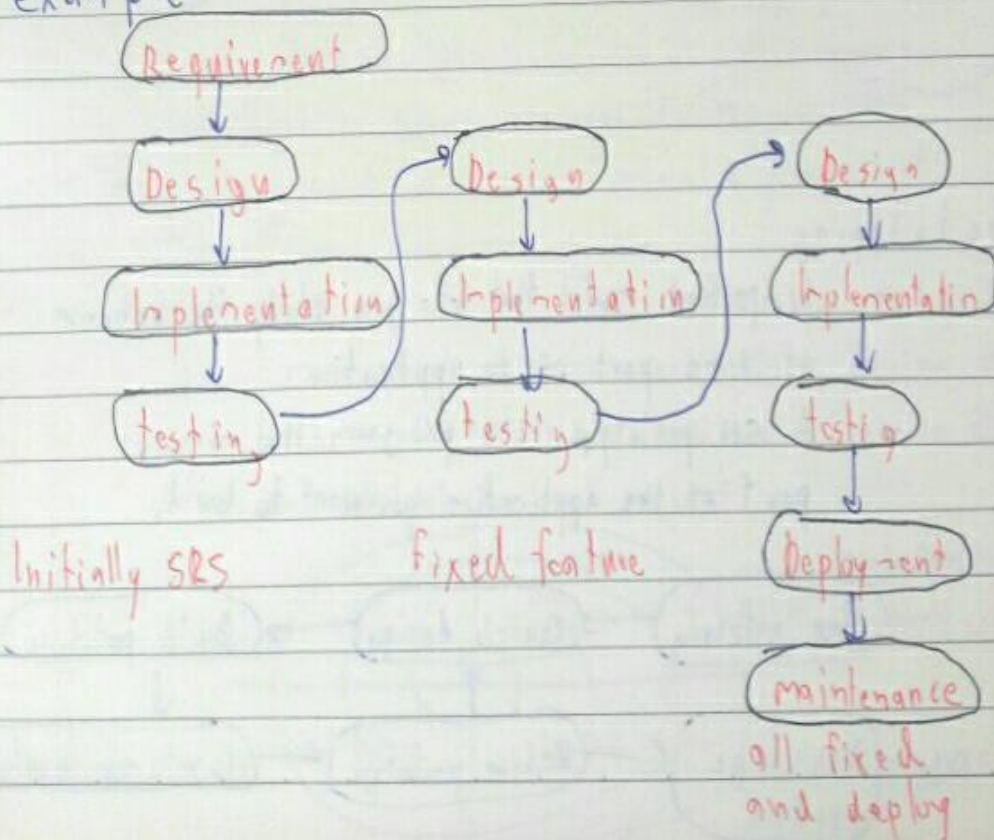 example
Requirement
Design
Implementation
testing
Initially SRS
Design
Implementation
testing
fixed feature
Design
Implementatin
testig
Deployment
maintenance
all fixed
and deploy